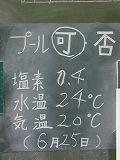 プール 可 否
塩素 0.4
水温 24℃
気温 20℃
(6月25日)